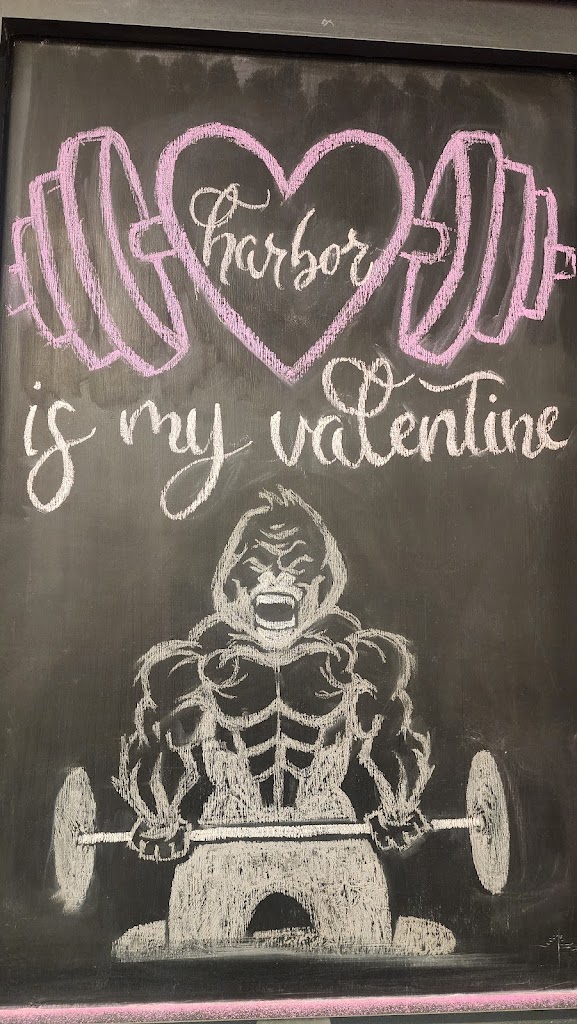 harbor
is my valentine